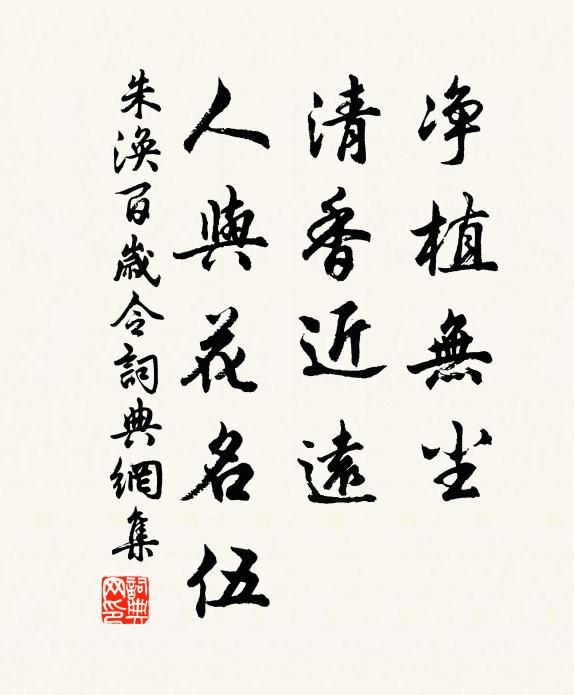 净植無尘
清香近遠
人與花名伍
朱渙百歲令詞典網集
詞典網印